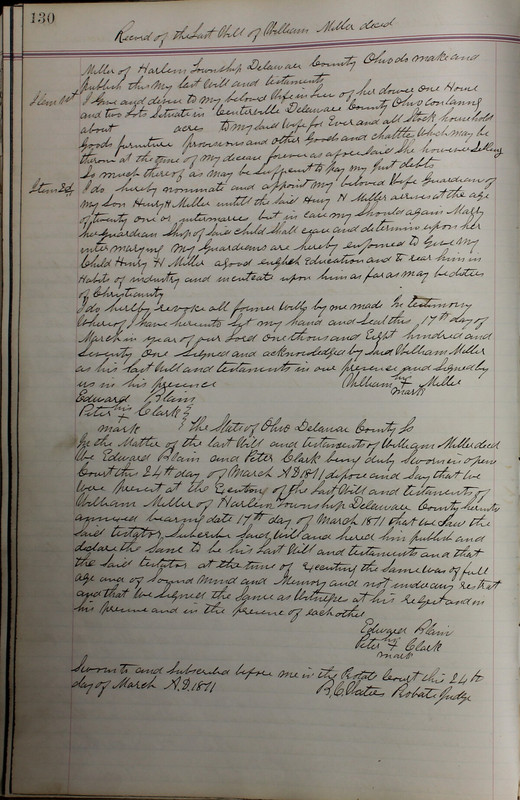 130
Record of the Last Will of William Miller decd
Miller of Harlem Township Delaware County Ohio do make and
publish this my last Will and testament
Item 1st I Give and devise to my beloved Wife in lieu of her dower One Home
and two Lots Situate in Centerville Delaware County Ohio Containing
about acres to my said Wife for Ever and all Stock household
Goods furniture provisions and other Goods and chattles Which may be
thereon at the time of my decease forever as afore Said She however Selling
So much thereof as may be Suffcient to pay my Just debts
Item 2d I do hereby nominate and appoint my beloved Wife Guardian of
my Son Henry H Miller untill the said Henry H Miller arrives at the age
of twenty one or intermaries but in case my Should again Marry
her Guardian Ship of Said Child Shall cease and determin upon her
intermarying My Guardians are hereby enjoined to Give my
Child Henry H Miller a good english Education and to rear him in
Habits of industry and upon him as far as may be duties
of Christianity
I do hereby revoke all former Wills by me made In testimony
Whereof I have hereunto Set my hand and Seal this 17th day of
March in year of our Lord One thousand and Eight hundred and
Seventy One Signed and acknowledged by Said William Miller
as his last Will and testaments in our presence and Signed by
us in his presence William his + mark Miller
Edward Blain
Peter his + mark Clark
The State of Ohio Delaware County Ss
In the Matter of the last Will and testament of William Miller decd
We Edward Blain and Peter Clark being duly Sworn in open
Court this 24th day of March A.D. 1871 depose and Say that We
Were present at the Executing of the Last Will and testaments of
William Miller of Harlem Township Delaware County hereunto
annexed bearing date 17th day of March 1871 that we Saw the
Said testator Subscribe Said Will and heard him publish and
declare the Same to be his Last Will and testaments and that
the Said testator at the time of Executing the Same was of full
age and of Sound Mind and Memory and not under any restrat
and that We Signed the Same as Witnesses at his and in
his presence and in the presence of each other
Edward Blain
Peter his + mark Clark
Sworn to and Subscribed before me in the Court this 24th
day of March A.D. 1871 B.C. Waters Probate Judge